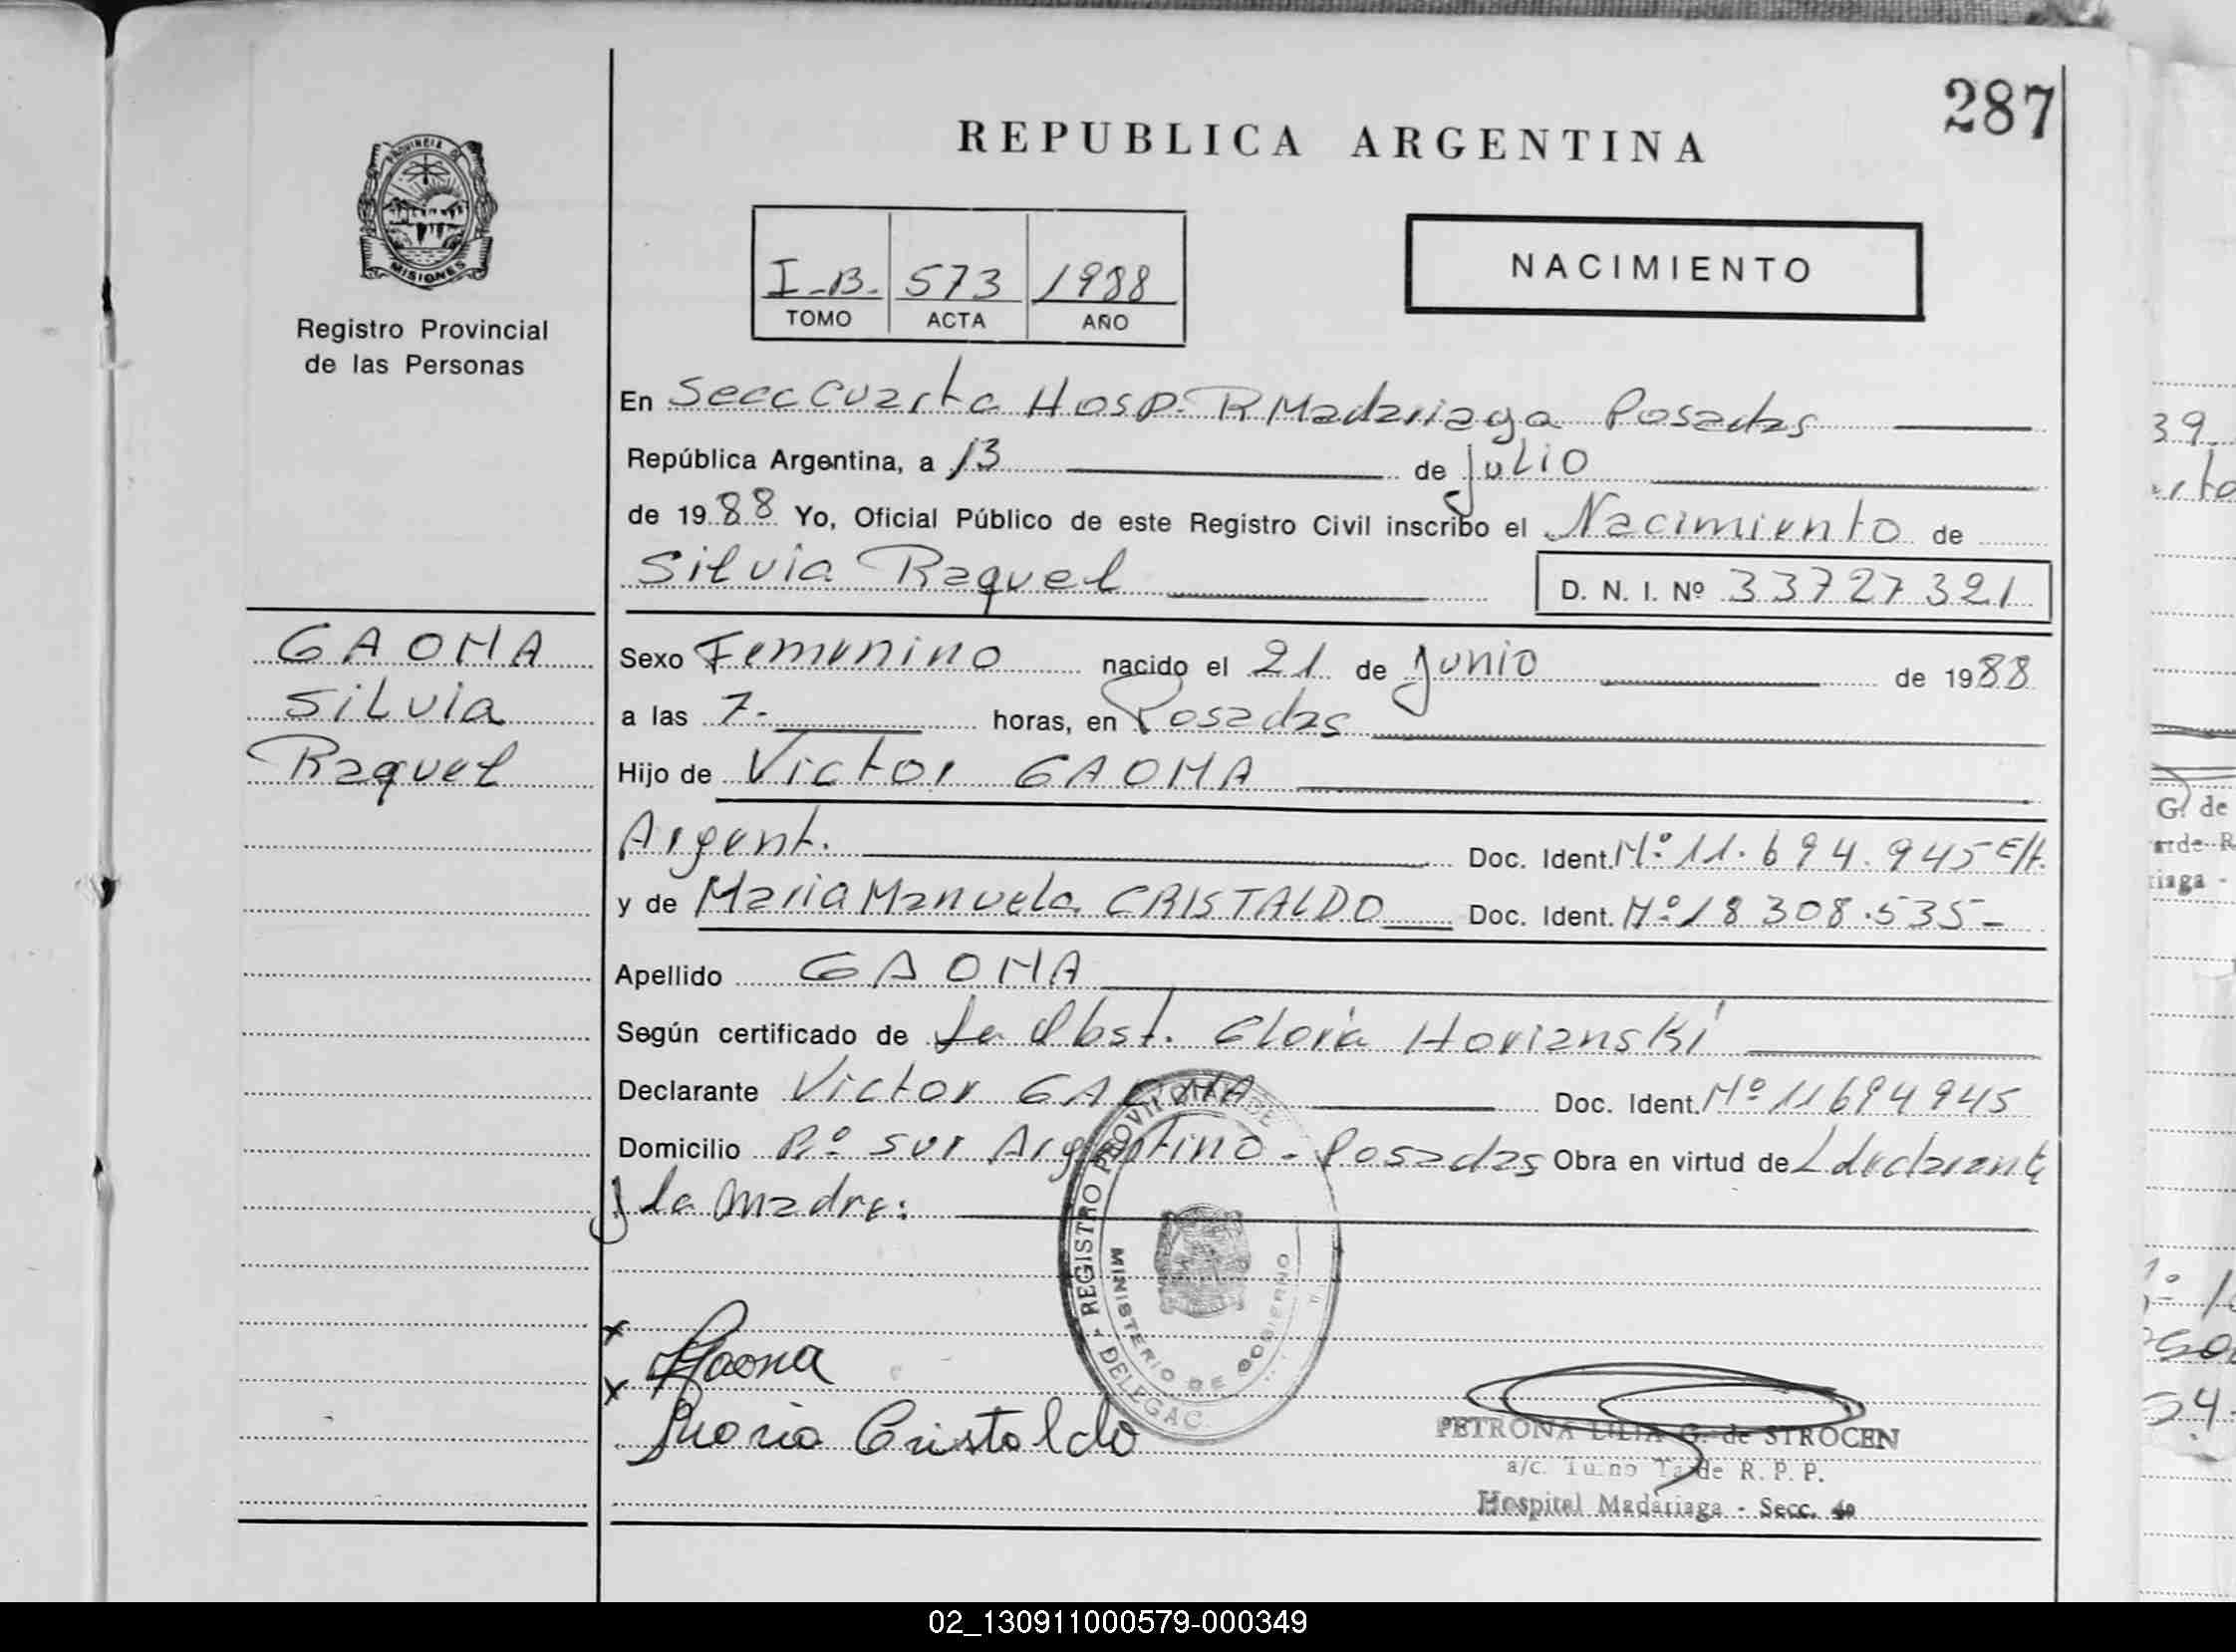 287
REPUBLICA ARGENTINA
PROVINCIA DE
MISIONES
Registro Provincial
de las Personas
I-B- 573 1988
TOMO ACTA AÑO
NACIMIENTO
En Secc Cuarta Hosp. R Madariaga Posadas
República Argentina, a 13 de Julio
de 1988 Yo, Oficial Público de este Registro Civil inscribo el Nacimiento de
Silvia Raquel D. N. I. Nº 33727321
GAONA
Silvia
Raquel
Sexo Femenino nacido el 21 de Junio de 1988
a las 7- horas, en Posadas
Hijo de Victor GAONA
Argent. Doc. Ident. Nº 11.694.945 E/t.
y de Maria Manuela CRISTALDO Doc. Ident. Nº 18308.535-
Apellido GAONA
Según certificado de La Obst. Gloria Horianski
Declarante Victor GAONA Doc. Ident. Nº 11694945
Domicilio Bº Sur Argentino - Posadas Obra en virtud de L declarante
y la Madre:
REGISTRO PROVINCIAL DE
MINISTERIO DE GOBIERNO
DELEGAC.
x Gaona
x Maria Cristaldo
PETRONA LILIA G. de STROCEN
a/c. Turno Tarde R. P. P.
Hospital Madariaga - Secc. 4a
39
G. de
arde R
iaga -
02_130911000579-000349